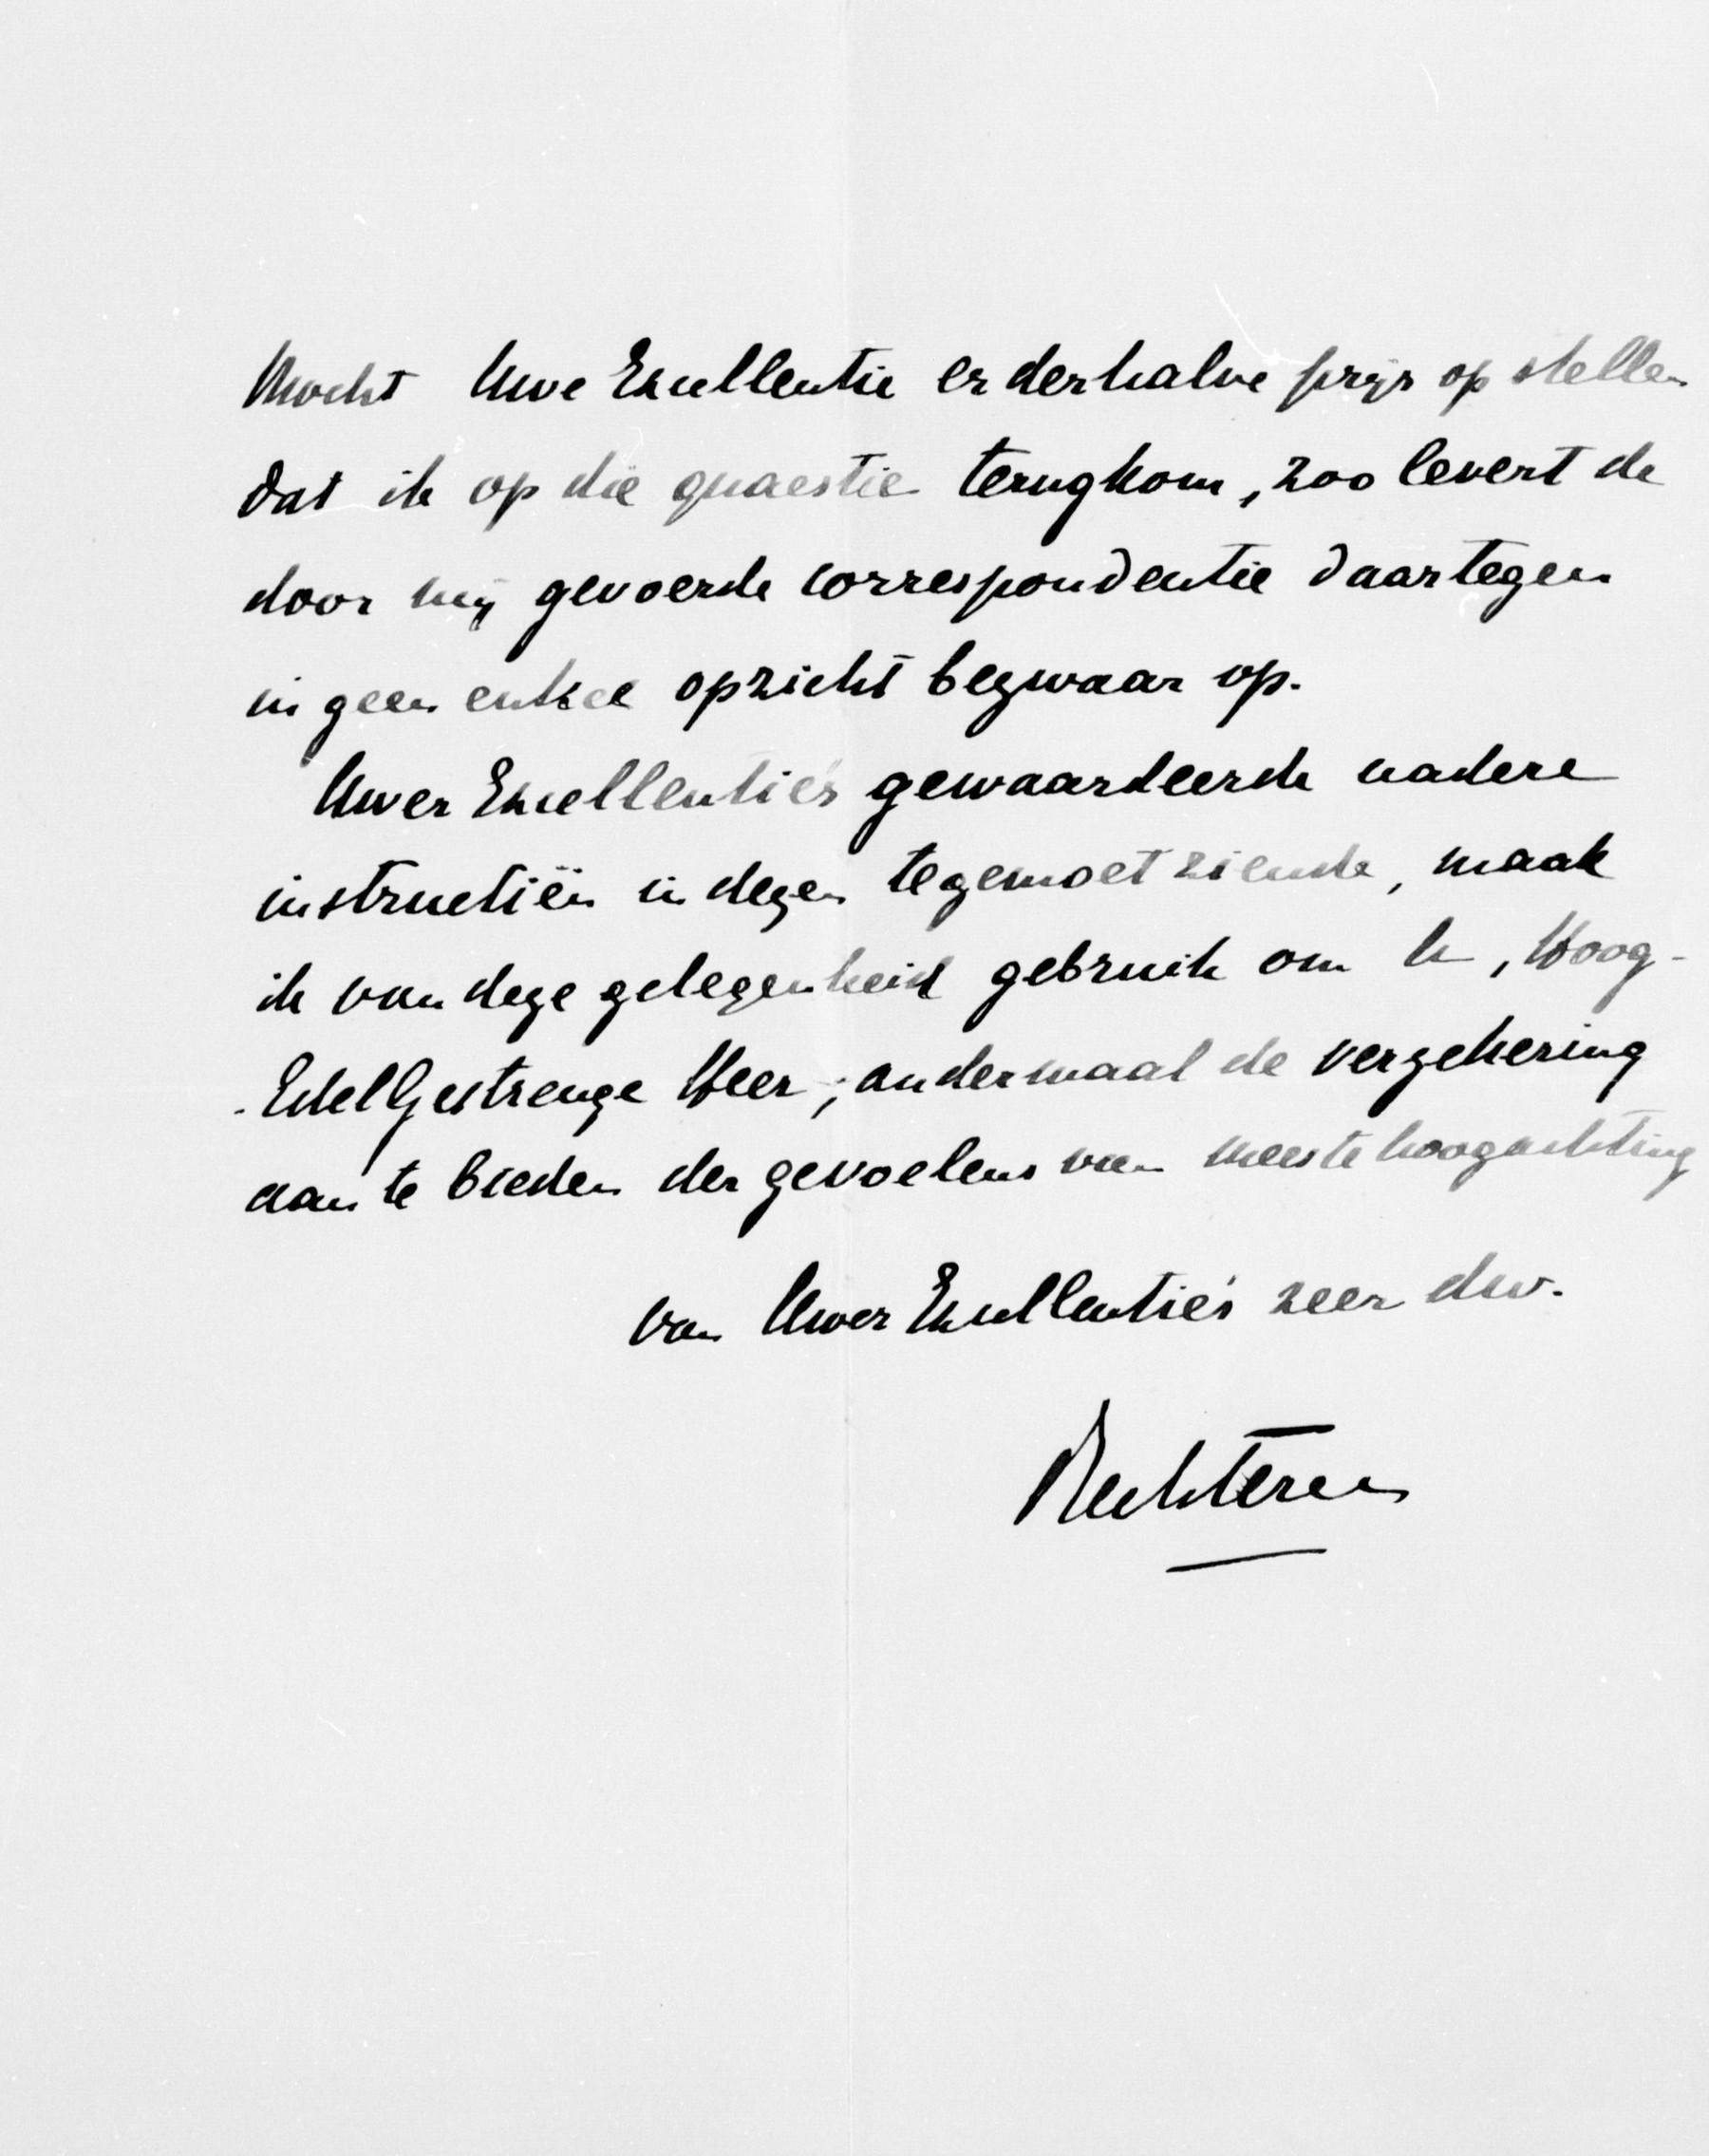 Mocht Uwe Excellentie er derhalve prijs op stellen
dat ik op die quaestie terugkom, zoo levert de
door mij gevoerde correspondentie daartegen
in geen enkel opzicht bezwaar op.
Uwer Excellentie's gewaardeerde nadere
instructiën in dezen tegemoet ziende, maak
ik van deze gelegenheid gebruik om U, Hoog-
-EdelGestrenge Heer, andermaal de verzekering
aan te bieden der gevoelens van meeste hoogachting
van Uwer Excellentie's zeer dw.
Rechteren